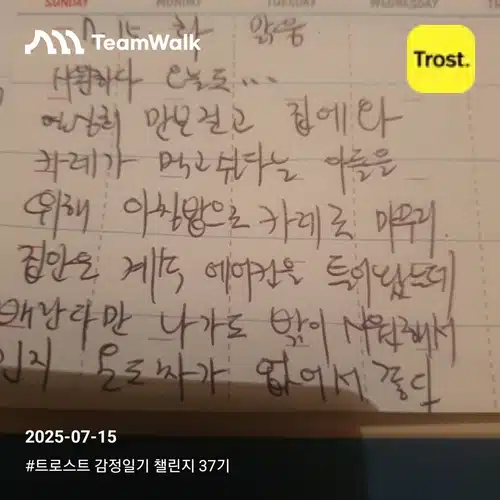 SUNDAY MONDAY TUESDAY WEDNESDAY
TeamWalk
Trost.
맑음
시원하다 오늘도...
열심히 만보걷고 집에와
카레가 먹고싶다는 아들을
위해 아침밥으로 카레로 마무리.
집안은 계속 에어컨을 틀어놨는데
베란다만 나가도 밖이 시원해서
인지 온도차가 없어서 좋다
2025-07-15
#트로스트 감정일기 챌린지 37기